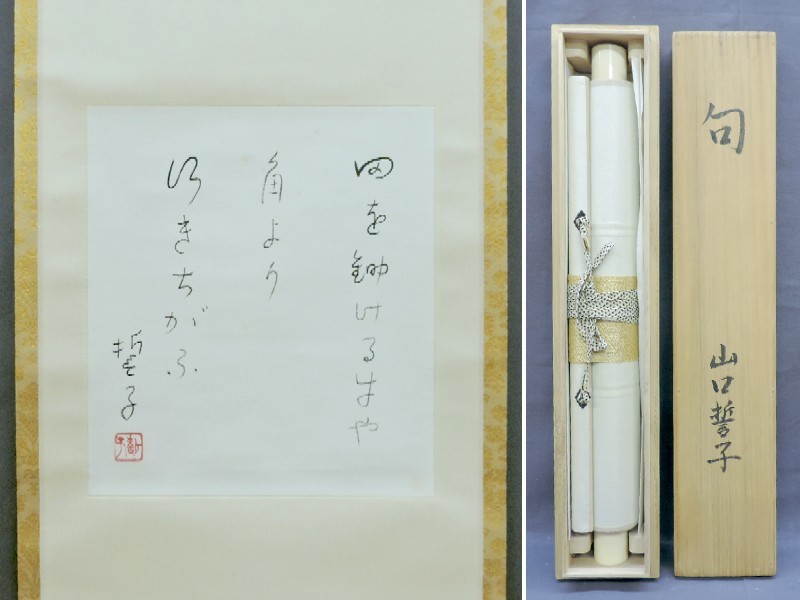 田を鋤ける牛や
角より
行きちがふ
誓子
句
山口誓子